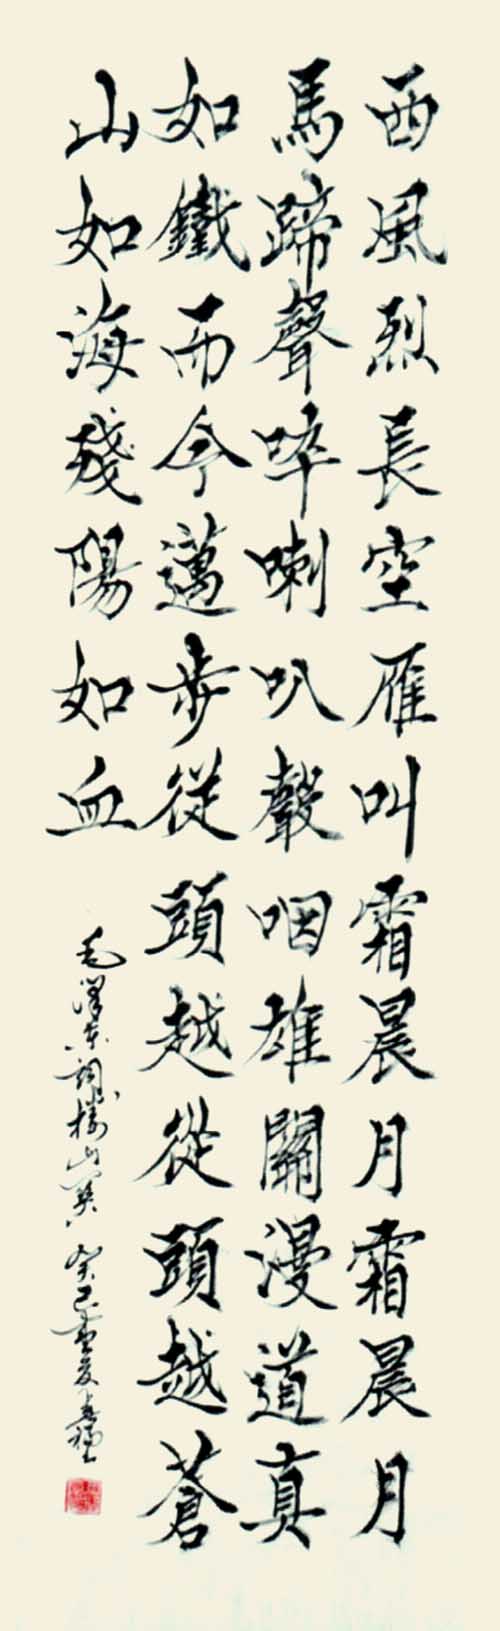 西風烈長空雁叫霜晨月霜晨月
馬蹄聲啐喇叭聲咽雄關漫道真
如鐵而今邁步從頭越從頭越蒼
山如海殘陽如血
毛澤東詞婁山關 癸巳重夏